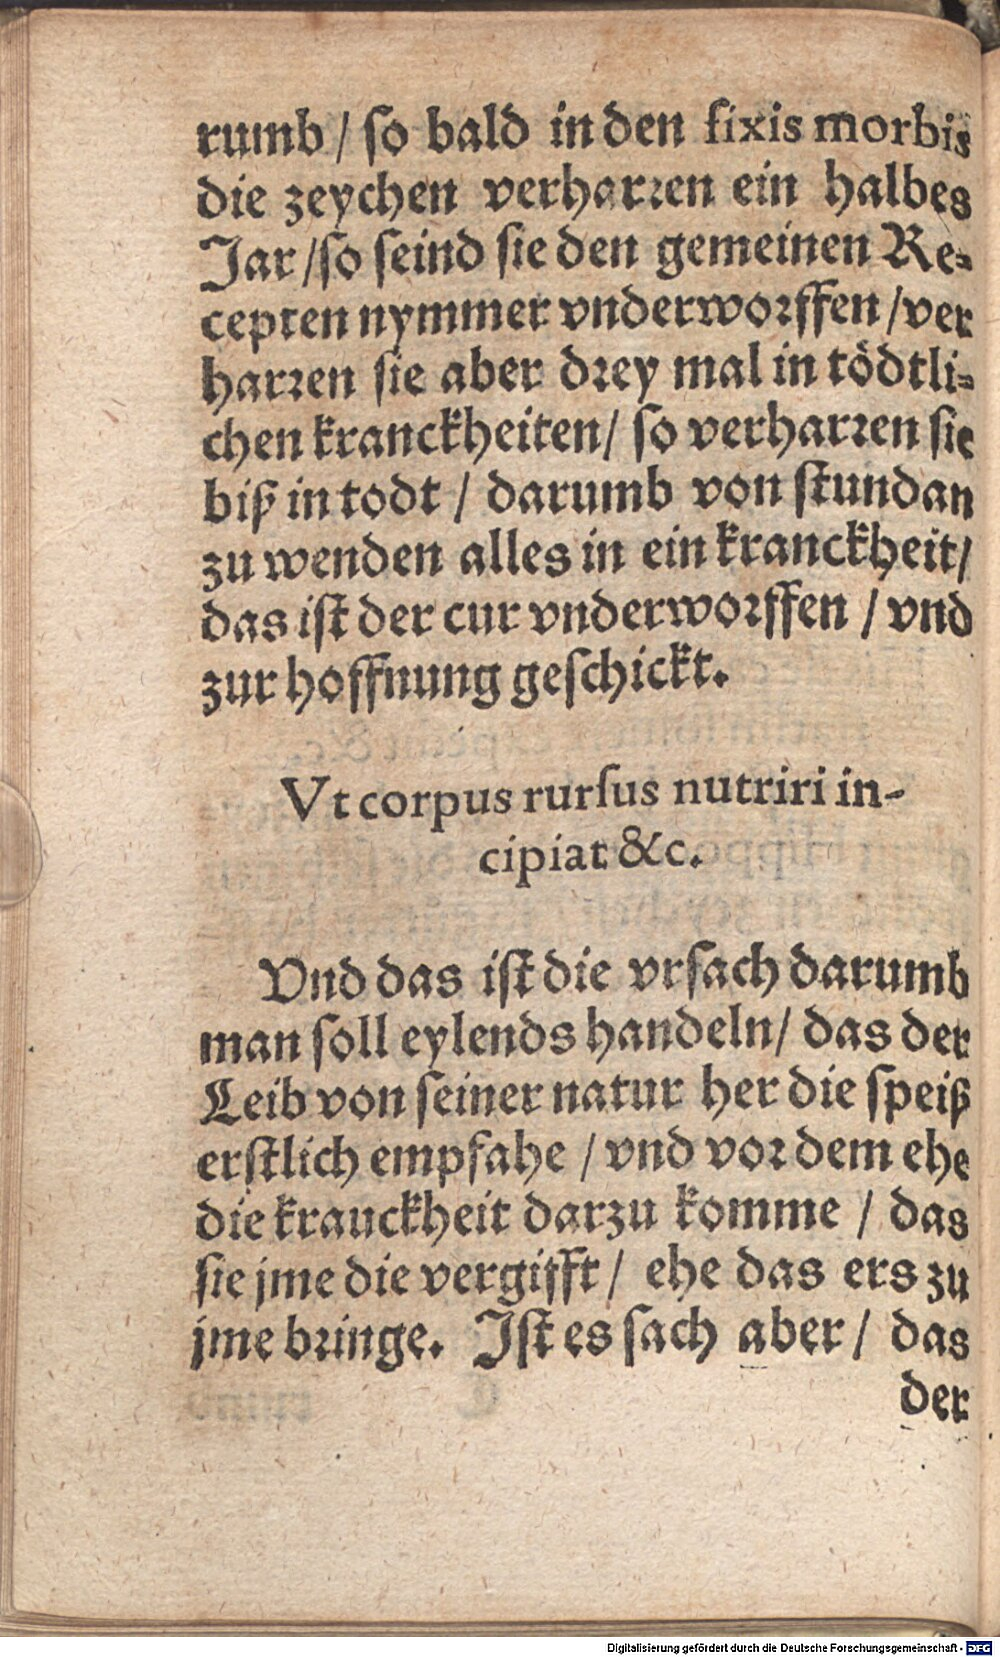 rumb / so bald in den fixis morbis
die zeychen verharren ein halbes
Jar / so seind sie den gemeinen Re-
cepten nymmer vnderworffen / ver
harren sie aber drey mal in tödtli-
chen kranckheiten / so verharren sie
biß in todt / darumb von stundan
zu wenden alles in ein kranckheit /
das ist der cur vnderworffen / vnd
zur hoffnung geschickt.
Vt corpus rursus nutriri in-
cipiat &c.
Vnd das ist die vrsach darumb
man soll eylends handeln / das der
Leib von seiner natur her die speiß
erstlich empfahe / vnd vor dem ehe
die krauckheit darzu komme / das
sie jme die vergifft / ehe das ers zu
jme bringe. Ist es sach aber / das
der
Digitalisierung gefördert durch die Deutsche Forschungsgemeinschaft - DFG